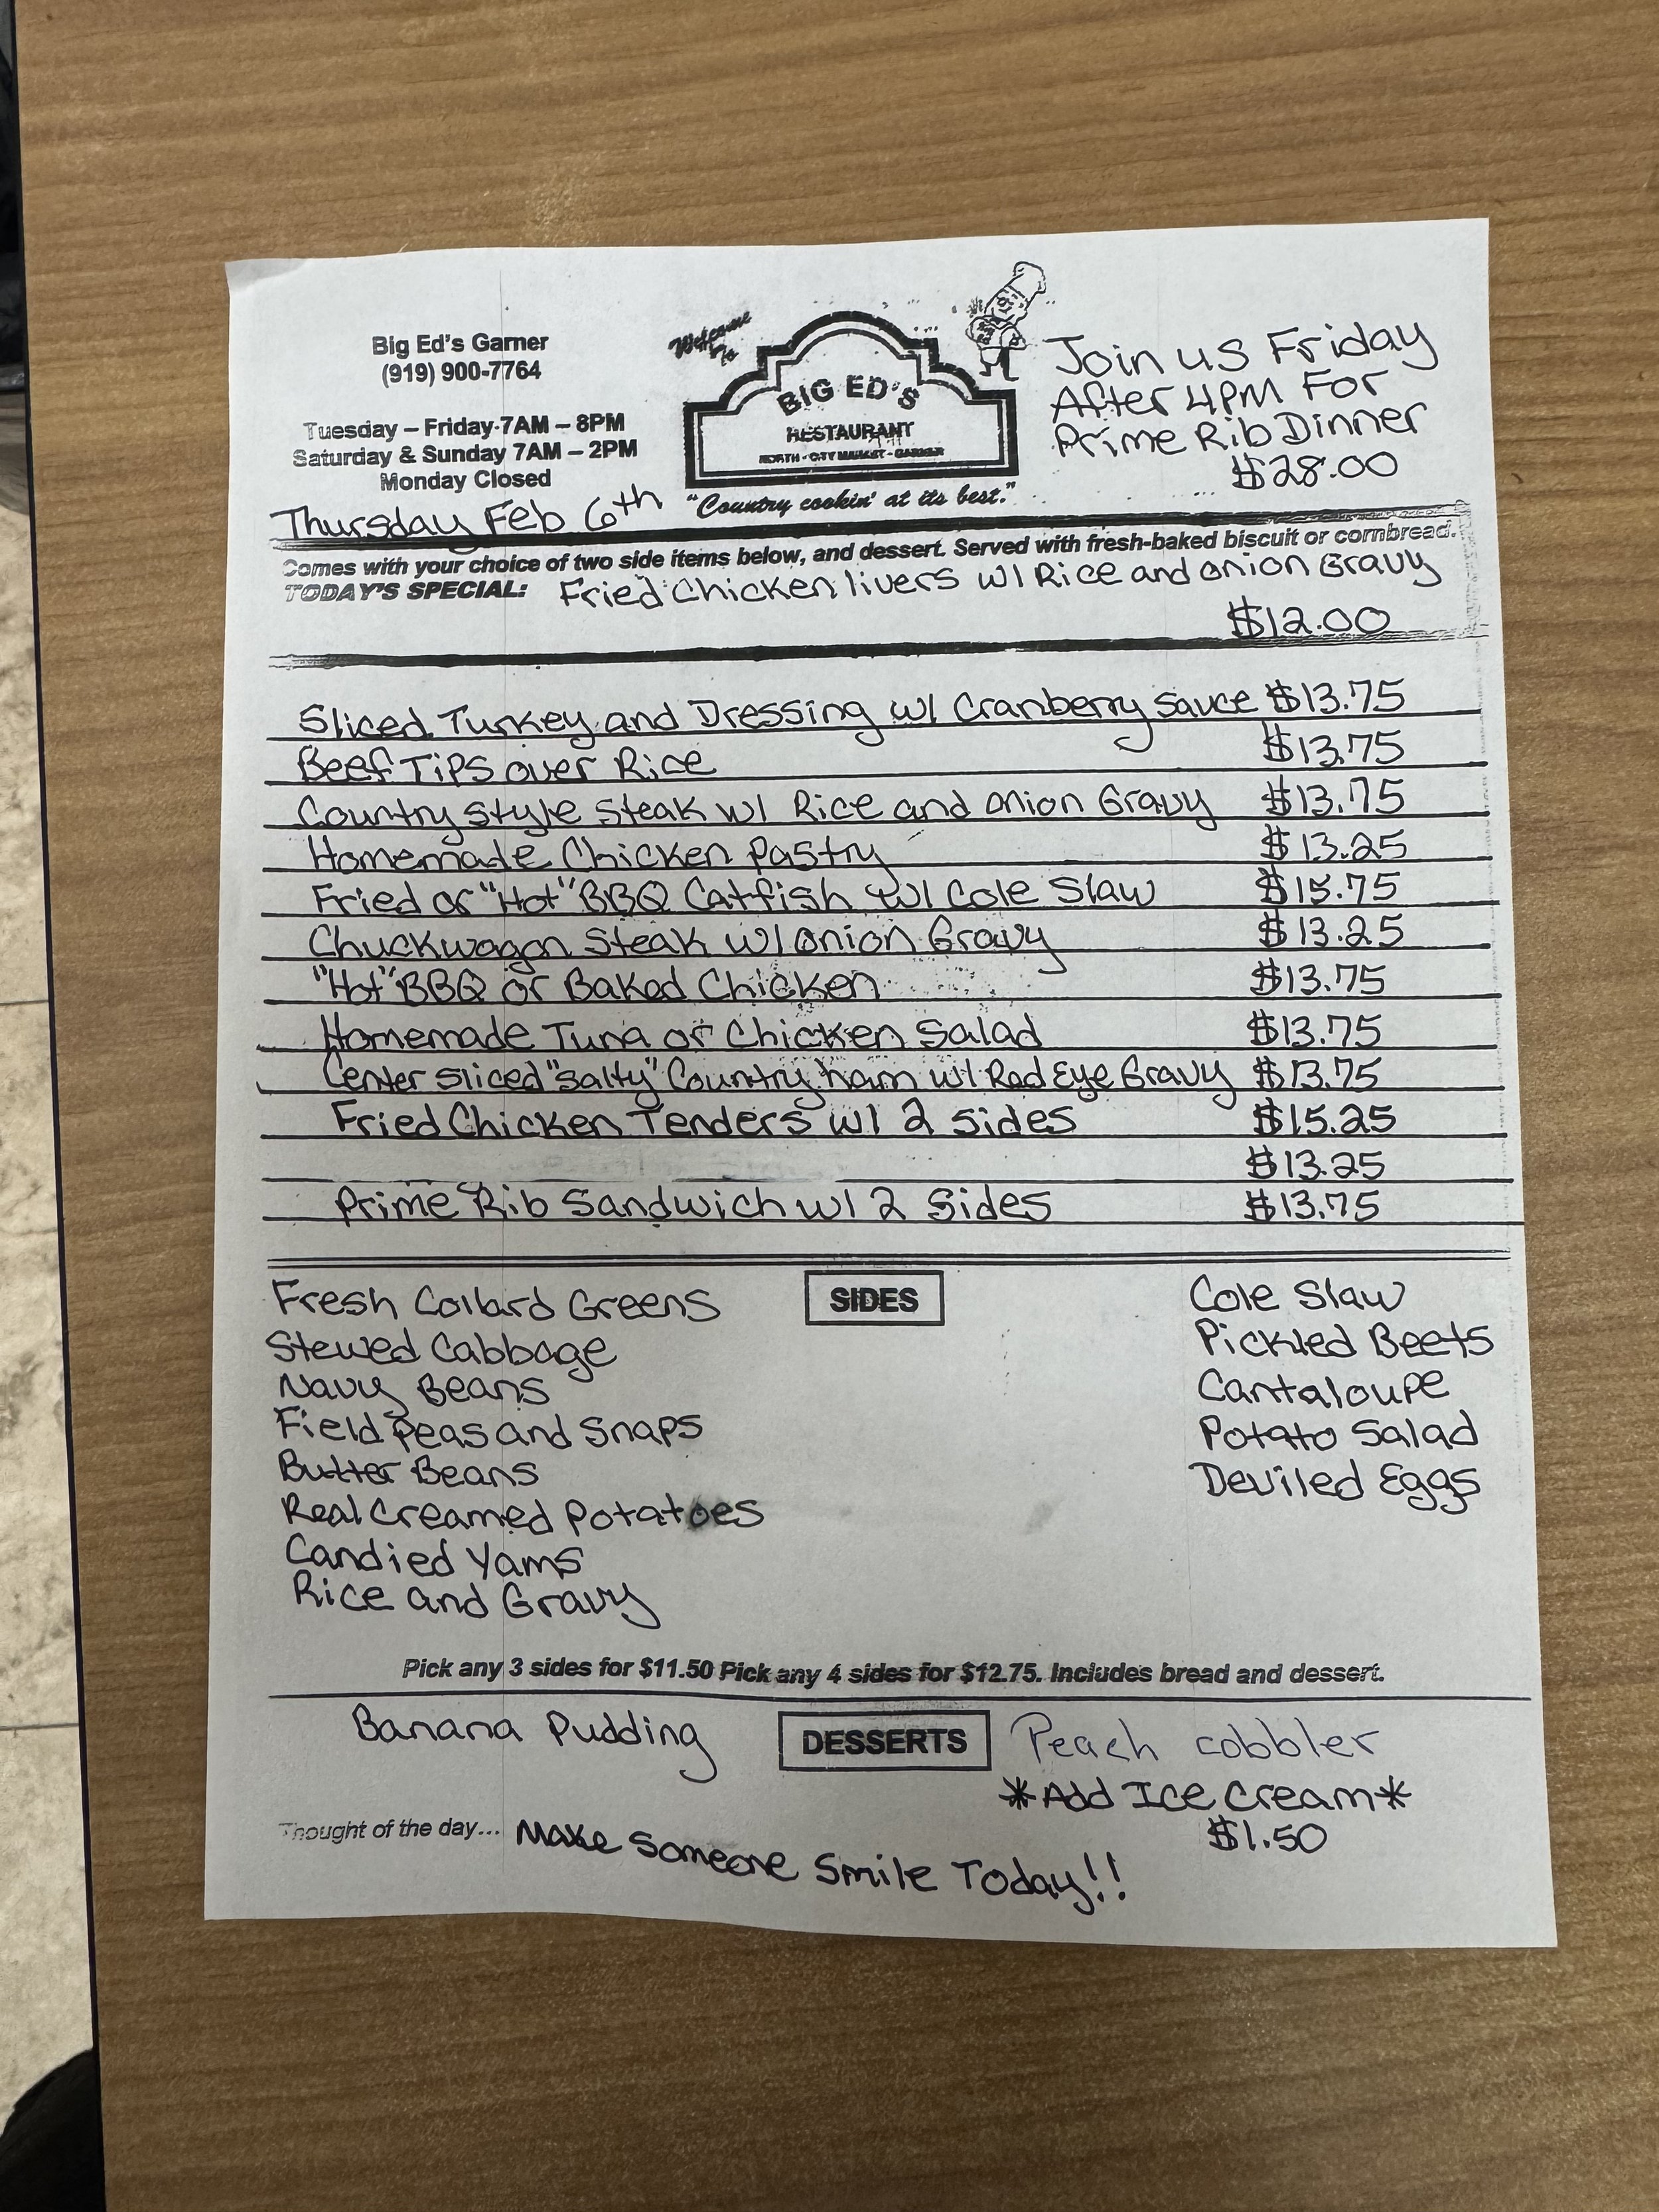 Big Ed's Garner
(919) 900-7764
Tuesday – Friday 7AM – 8PM
Saturday & Sunday 7AM – 2PM
Monday Closed
Welcome To
BIG ED'S
RESTAURANT
NORTH - CITY MARKET - GARNER
"Country cookin' at its best."
Join us Friday
After 4PM For
Prime Rib Dinner
$28.00
Thursday Feb 6th
Comes with your choice of two side items below, and dessert. Served with fresh-baked biscuit or cornbread.
TODAY'S SPECIAL: Fried Chicken livers w/ Rice and onion Gravy
$12.00
Sliced Turkey and Dressing w/ Cranberry Sauce $13.75
Beef Tips over Rice $13.75
Country Style Steak w/ Rice and onion Gravy $13.75
Homemade Chicken Pastry $13.25
Fried or "Hot" BBQ Catfish w/ Cole Slaw $15.75
Chuckwagon Steak w/ onion Gravy $13.25
"Hot" BBQ or Baked Chicken $13.75
Homemade Tuna or Chicken Salad $13.75
Center sliced "Salty" Country ham w/ Red Eye Gravy $13.75
Fried Chicken Tenders w/ 2 sides $15.25
$13.25
Prime Rib Sandwich w/ 2 Sides $13.75
SIDES
Fresh Collard Greens
Stewed Cabbage
Navy Beans
Field Peas and Snaps
Butter Beans
Real Creamed Potatoes
Candied Yams
Rice and Gravy
Cole Slaw
Pickled Beets
Cantaloupe
Potato Salad
Deviled Eggs
Pick any 3 sides for $11.50 Pick any 4 sides for $12.75. Includes bread and dessert.
Banana Pudding
DESSERTS
Peach cobbler
*Add Ice Cream*
$1.50
Thought of the day... Make Someone Smile Today!!